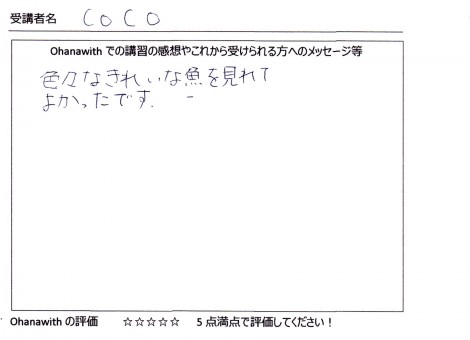 受講者名 COCO
Ohanawith での講習の感想やこれから受けられる方へのメッセージ等
色々なきれいな魚を見れて
よかったです.
Ohanawith の評価 ☆☆☆☆☆ 5 点満点で評価してください！